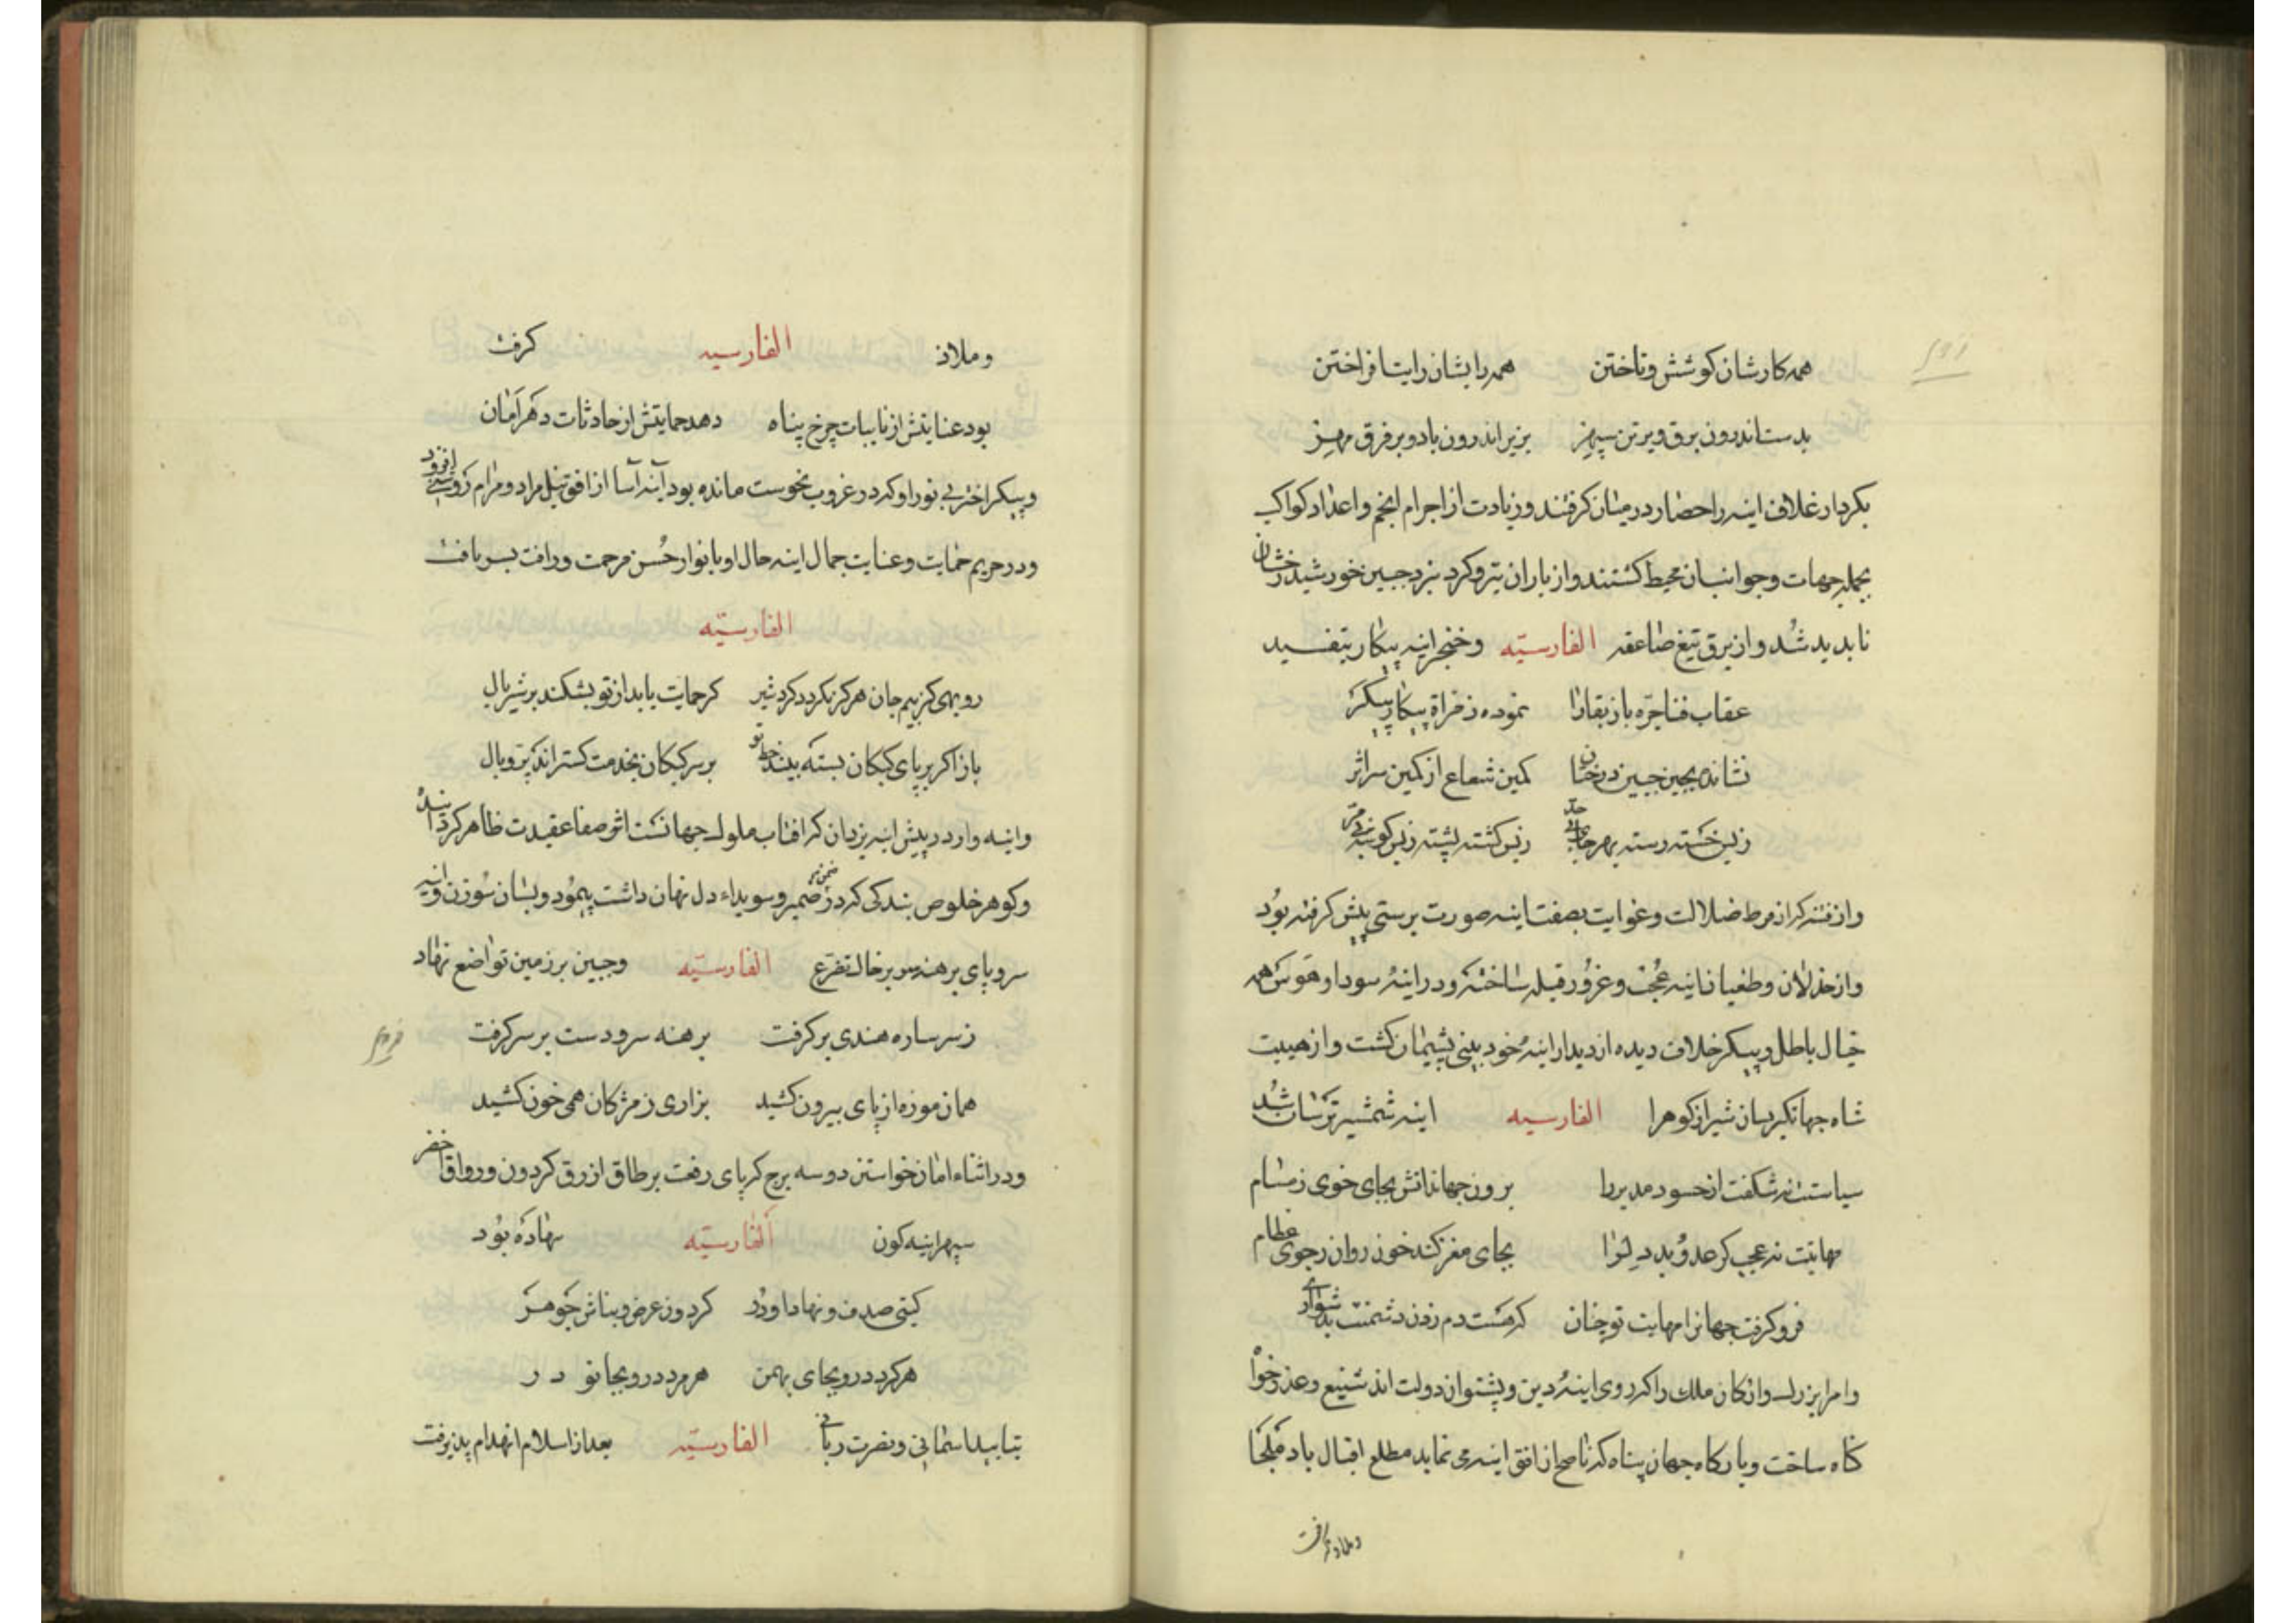 همه کارشان کوشش و تاختن همه رایشان رایت افراختن
بدست اندرون برق و بر تن سپهر بزیر اندرون باد و بر فرق مهر
بکردار غلاف اینه را حصار در میان کرفتند و زیادت از اجرام انجم و اعداد کواکب
بجمله جهات و جوانب ان محیط کشتند و از باران تیر و کرد نبرد جبین خورشید رخشان
نابدید شد و از برق تیغ صاعقه الفارسیه و خنجر اینه پیکار بتفسید
عقاب فنا جره باز بقارا نموده ز مرآة پیکار پیکر
نشانده بچین جبین درخشان کمین شعاع از کمین سرا
زبس خسته رسته بهر جای زبس کشته پشته زبس کوشه
و از فتنه که از فرط ضلالت و غوایت بصفت اینه صورت پرستی پیش کرفته بود
و از خذلان و طغیان اینه عجب و غرور قبله ساخته و در اینه سودا و هوس همه
خیال باطل و پیکر خلاف دیده از دیدار اینه خود بینی پشیمان کشت و از هیبت
شاه جهانکیر بسان شیر از کوهرا الفارسیه اینه شمشیر ترسان شد
سیاستت نه شکفت از حسود مدبر را برون جهاند اتش بجای خوی ز مسام
مهابتت نه عجب کر عدو بد دل را بجای مغز کند خون روان ز جوی عظام
فرو کرفت جهانرا مهابت تو چنان که هست دم زدن دشمنت بدشواری
و امرا بزرک و ارکان ملک را که روی اینه دین و پشتوان دولت اند شفیع و عذر خواه
کناه ساخت و بارکاه جهان پناه که تا صبح از افق اینه می نماید مطلع اقبال باد ملجا
و ملاذ کرفت
و ملاذ الفارسیه کرفت
بود عنایتش از نایبات چرخ پناه دهد حمایتش از حادثات دهر امان
و پیکر اختر بی نور او که در غروب نحوست مانده بود آینه آسا از افق نیل مراد و مرام روشنی افزود
و در حریم حمایت و عنایت جمال اینه حال او بانوار حسن مرحمت و رافت بسر یافت
الفارسیه
روبهی کز بیم جان هرکز نکردد کرد شیر کر حمایت یابد از تو بشکند بر شیر یال
باز اکر بر پای کبکان بسته بیند بر سر کبکان بخدمت کستراند پر و بال
و اینه وار در پیش اینه یزدان که افتاب ملوک جهانست اثر صفا عقیدت ظاهر کردانید
و کوهر خلوص بندکی که در ضمن ضمیر و سویداء دل نهان داشت پیمود و بسان سوزن و اینه
سر و پای برهنه سر بر خاک تضرع الفارسیه و جبین بر زمین تواضع نهاد
ز سر ساره هندی برکرفت برهنه سر و دست بر سر کرفت
همان موزه از پای بیرون کشید بزاری ز مژکان همی خون کشید
و در اثناء امان خواستن دو سه برج که پای رفعت بر طاق ازرق کردون و رواق اخضر
سپهر اینه کون الفارسیه نهاده بود
کیتی صدف و نهاد او در کردون عرض و بناش جوهر
هر کرد درو بجای بهمن هر مرد درو بجا نو د ر
بتایید اسمانی و نصرت ربانی الفارسیه بعد از اسلام انهدام پذیرفت